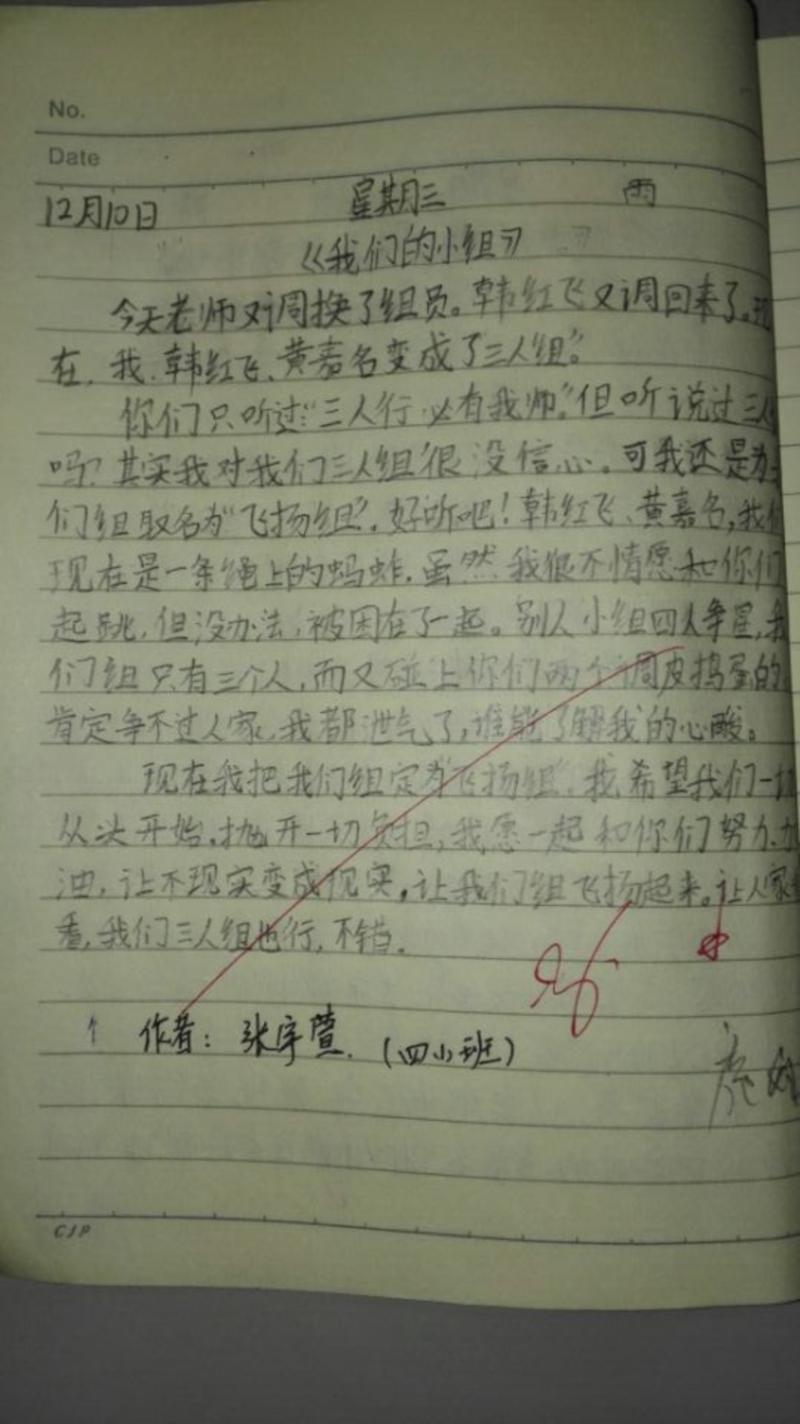 No.
Date
12月10日 星期三 雨
《我们的小组》
今天老师又调换了组员。韩红飞又调回来了。现
在,我、韩红飞、黄嘉名变成了“三人组”。
你们只听过“三人行,必有我师”。但听说过三人
吗?其实我对我们“三人组”很没信心。可我还是为
们组取名为“飞扬组”,好听吧!韩红飞、黄嘉名,我们
现在是一条绳上的蚂蚱,虽然我很不情愿和你们
起跳,但没办法,被困在了一起。别人小组四人争星,我
们组只有三个人,而又碰上你们两个调皮捣蛋的,
肯定争不过人家,我都泄气了,谁能了解我的心酸。
现在我把我们组定为“飞扬组”,我希望我们一切
从头开始,抛开一切负担,我愿一起和你们努力,加
油,让不现实变成现实,让我们组飞扬起来。让人家
看,我们三人组也行,不错。
作者:张宇萱.(四小班)
CIP